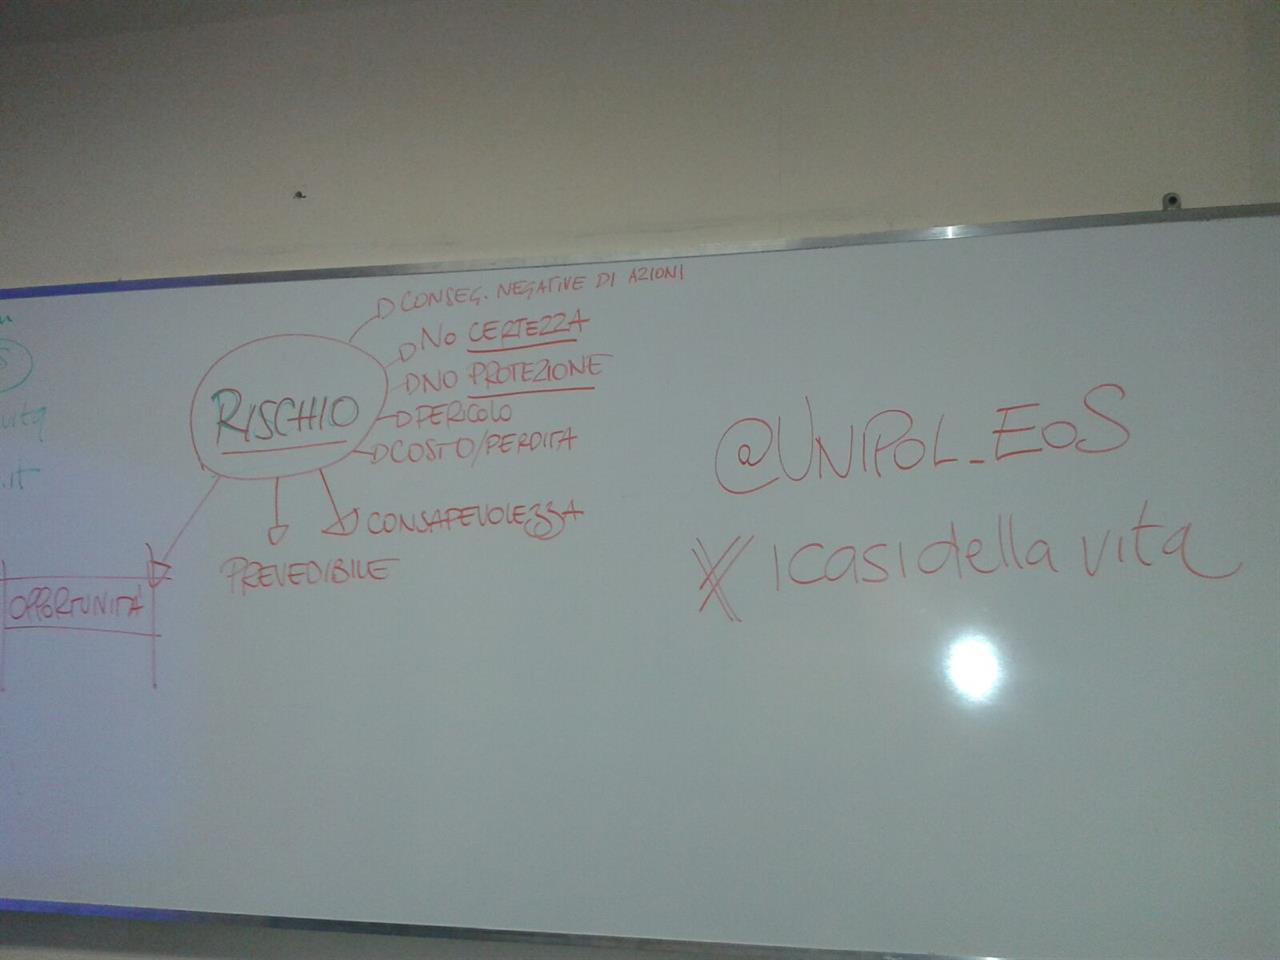 CONSEG. NEGATIVE DI AZIONI
NO CERTEZZA
NO PROTEZIONE
RISCHIO
PERICOLO
COSTO/PERDITA
CONSAPEVOLEZZA
PREVEDIBILE
OPPORTUNITÀ
.it
@UNIPOL_EOS
#icasidellavita